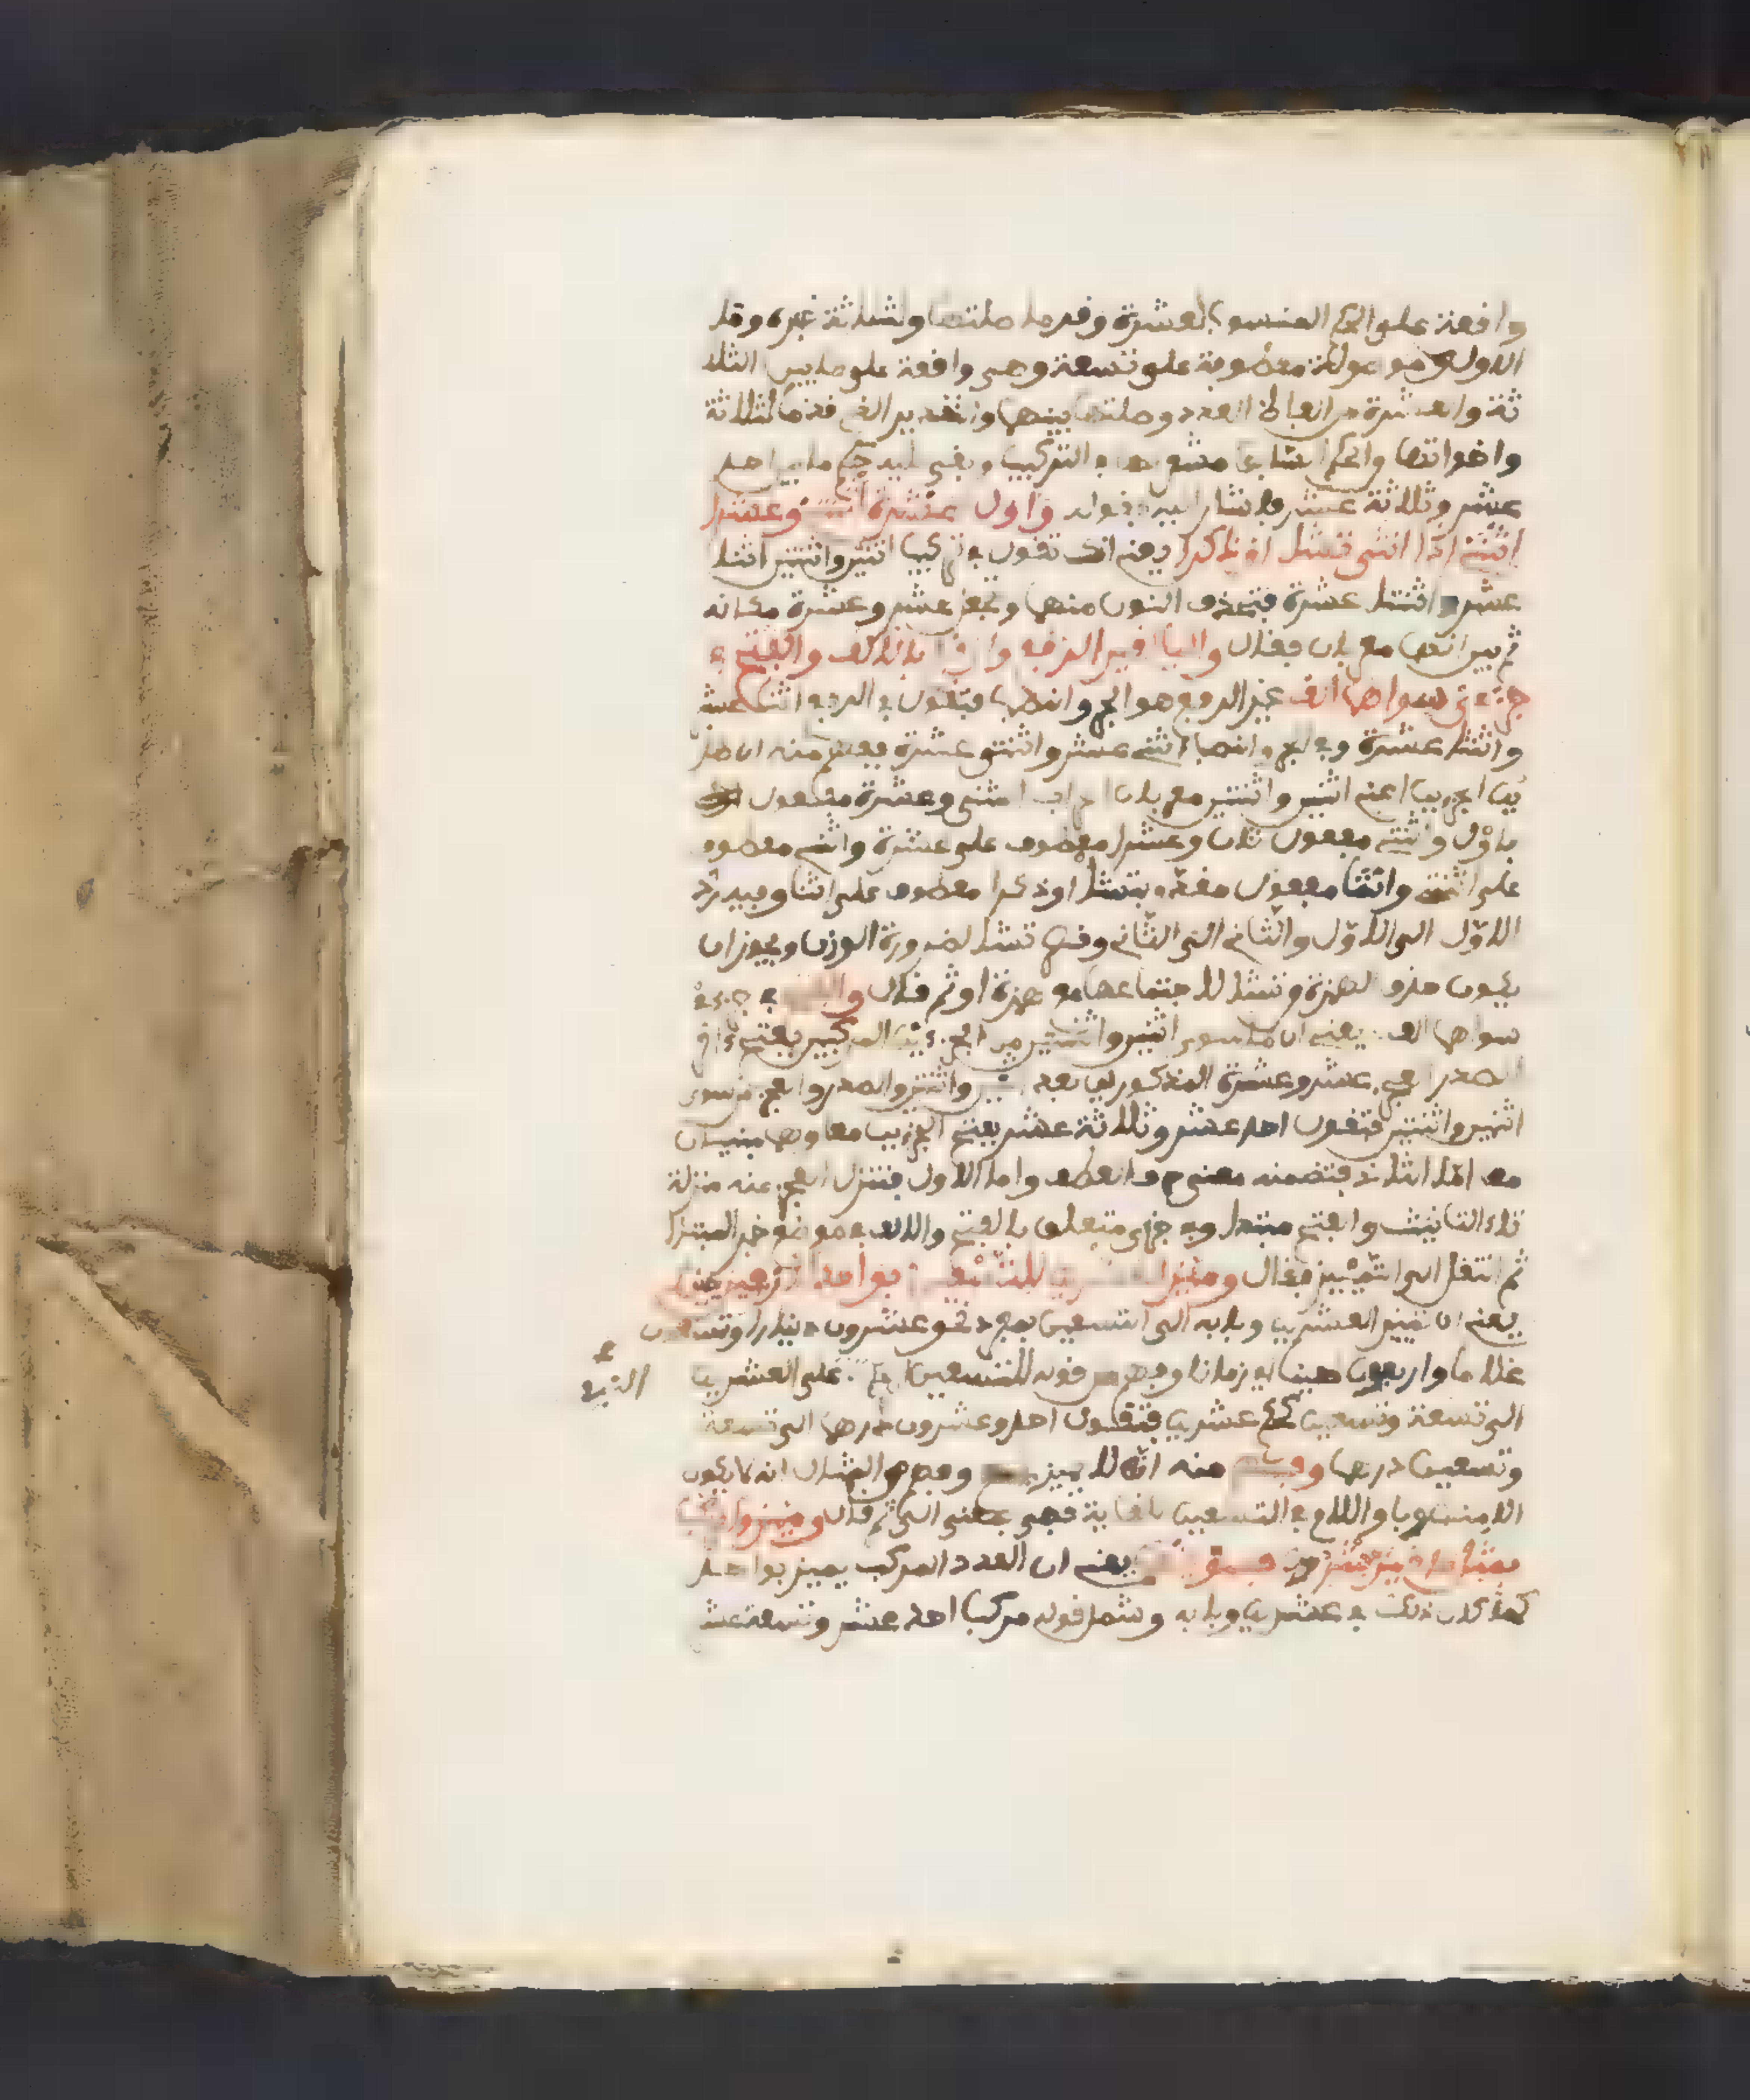 واقعة على الحكم المنسوب لعشرة وقدما صلتها وثلاثة خبره وما
الاولى موصولة معطوفة على تسعة وهى واقعة على ما بين الثلا
ثة والعشرة من الفاظ العدد وصلتها بينهما والتقدير الذى قدما لثلاثة
واخواتها والحكم السابق مشعر بها فى التركيب وبقى عليه حكم ما بين احد
عشر وثلاثة عشر فاشار اليه بقوله واول عشرة اثنتى وعشرا
اثنى اذا انثى تشا او ذكرا يعنى انك تقول فى تركيب اثنين واثنتين اثنا
عشر واثنتا عشرة فتحذف النون منهما وتجعل عشر وعشرة مكانه
ثم بين انهما معربان فقال واليا لغير الرفع وارفع بالالف والفتح فى
جزءى سواهما الف غير الرفع هو الجر والنصب فتقول فى الرفع اثنا عشر
واثنتا عشرة وفى الجر والنصب اثنى عشر واثنتى عشرة ففهم منه ان هذ
ين الجزءين اعنى اثنين واثنتين معربان اعراب المثنى وعشرة مفعول
باول واثنتى مفعول ثان وعشرا معطوف على عشرة واثنى معطوف
على اثنتى وانثى مفعول مقدم بتشا او ذكرا معطوف على انثى وفيه رد
الاول الى الاول والثانى الى الثانى وقصر تشا لضرورة الوزن ويجوز ان
يكون حذف الهمزة وتشا لاجتماعها مع همزة او ثم قال والفتح فى جزءى
سواهما الف يعنى ان ما سوى اثنين واثنتين من الجزءين المركبين يفتح
الصدر العجز عشر وعشرة المذكورين بعد اثنين واثنتين والصدر والعجز من سوى
اثنين واثنتين فتقول احد عشر وثلاثة عشر بفتح الجزءين معا وهما مبنيان
معا اما الثانى فتضمنه معنى حرف العطف واما الاول فتنزل العجز منه منزلة
تاء التانيث والفتح مبتدا وفى جزءى متعلق بالفتح والالف فى موضع خبر المبتدا
ثم انتقل الى التمييز فقال وميز العشرين للتسعين بواحد كاربعين حينا
يعنى ان تمييز العشرين وبابه الى التسعين بمفرد نحو عشرون دينارا وتسعون
غلاما واربعين حينا اى زمانا وفهم من قوله للتسعين على العشرين
الى تسعة وتسعين كعشرين فتقول احد وعشرون درهما الى تسعة
وتسعين درهما وفهم منه انه لا يميز وفهم من المثال انه لا يكون
الا منصوبا واللام فى التسعين للغاية فهى بمعنى الى ثم قال وميزوا مركبا
بمثل ما ميز عشرون فسوينهما يعنى ان العدد المركب يميز بواحد
كما كان ذلك فى عشرين وبابه وشمل قوله مركبا احد عشر وتسعة عشر